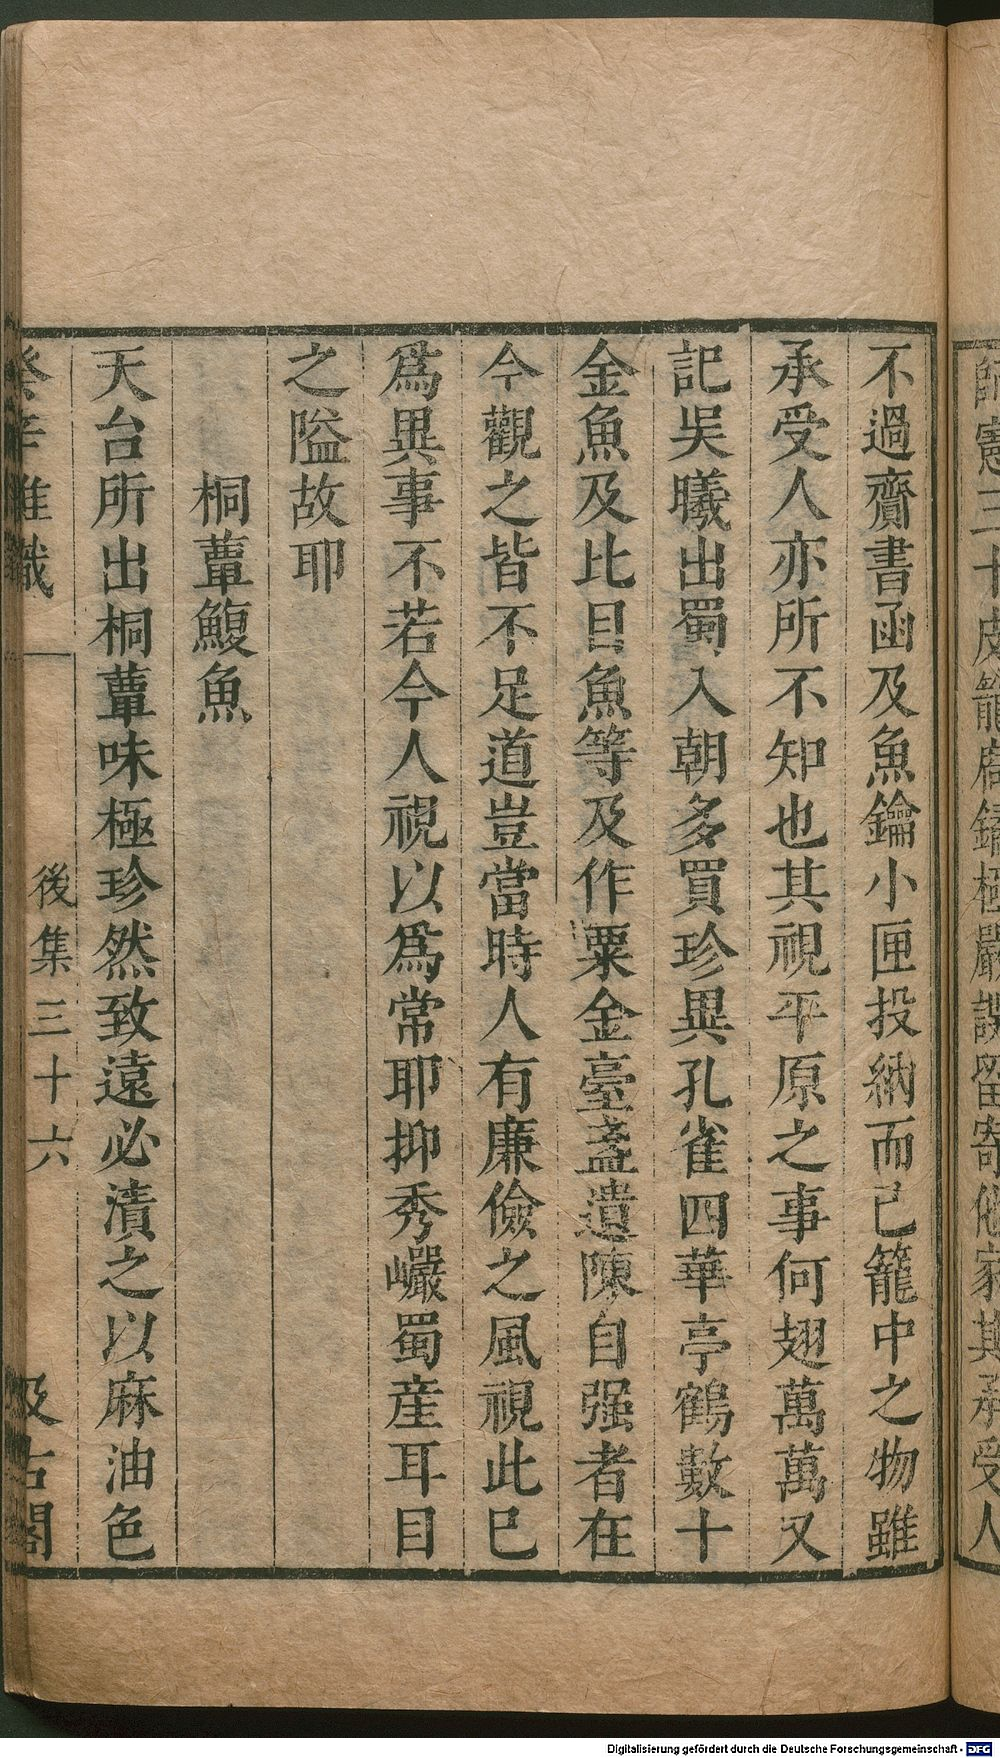 不過齎書函及魚鑰小匣投納而已籠中之物雖
承受人亦所不知也其視平原之事何翅萬萬又
記吳曦出蜀入朝多買珍異孔雀四華亭鶴數十
金魚及比目魚等及作粟金臺盞遺陳自强者在
今觀之皆不足道豈當時人有廉儉之風視此已
爲異事不若今人視以爲常耶抑秀巖蜀産耳目
之隘故耶
桐蕈鰒魚
天台所出桐蕈味極珍然致遠必漬之以麻油色
癸辛雜識 後集三十六 汲古閣
三十皮籠扃鐍極嚴誤留寄他家其承受人
Digitalisierung gefördert durch die Deutsche Forschungsgemeinschaft - DFG